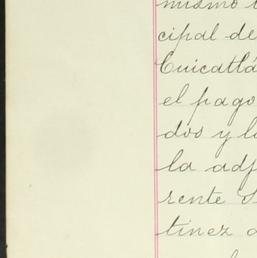 mismo
cipal de
Cuicatlá
el pago
dos y l
la adj
rente
tinez